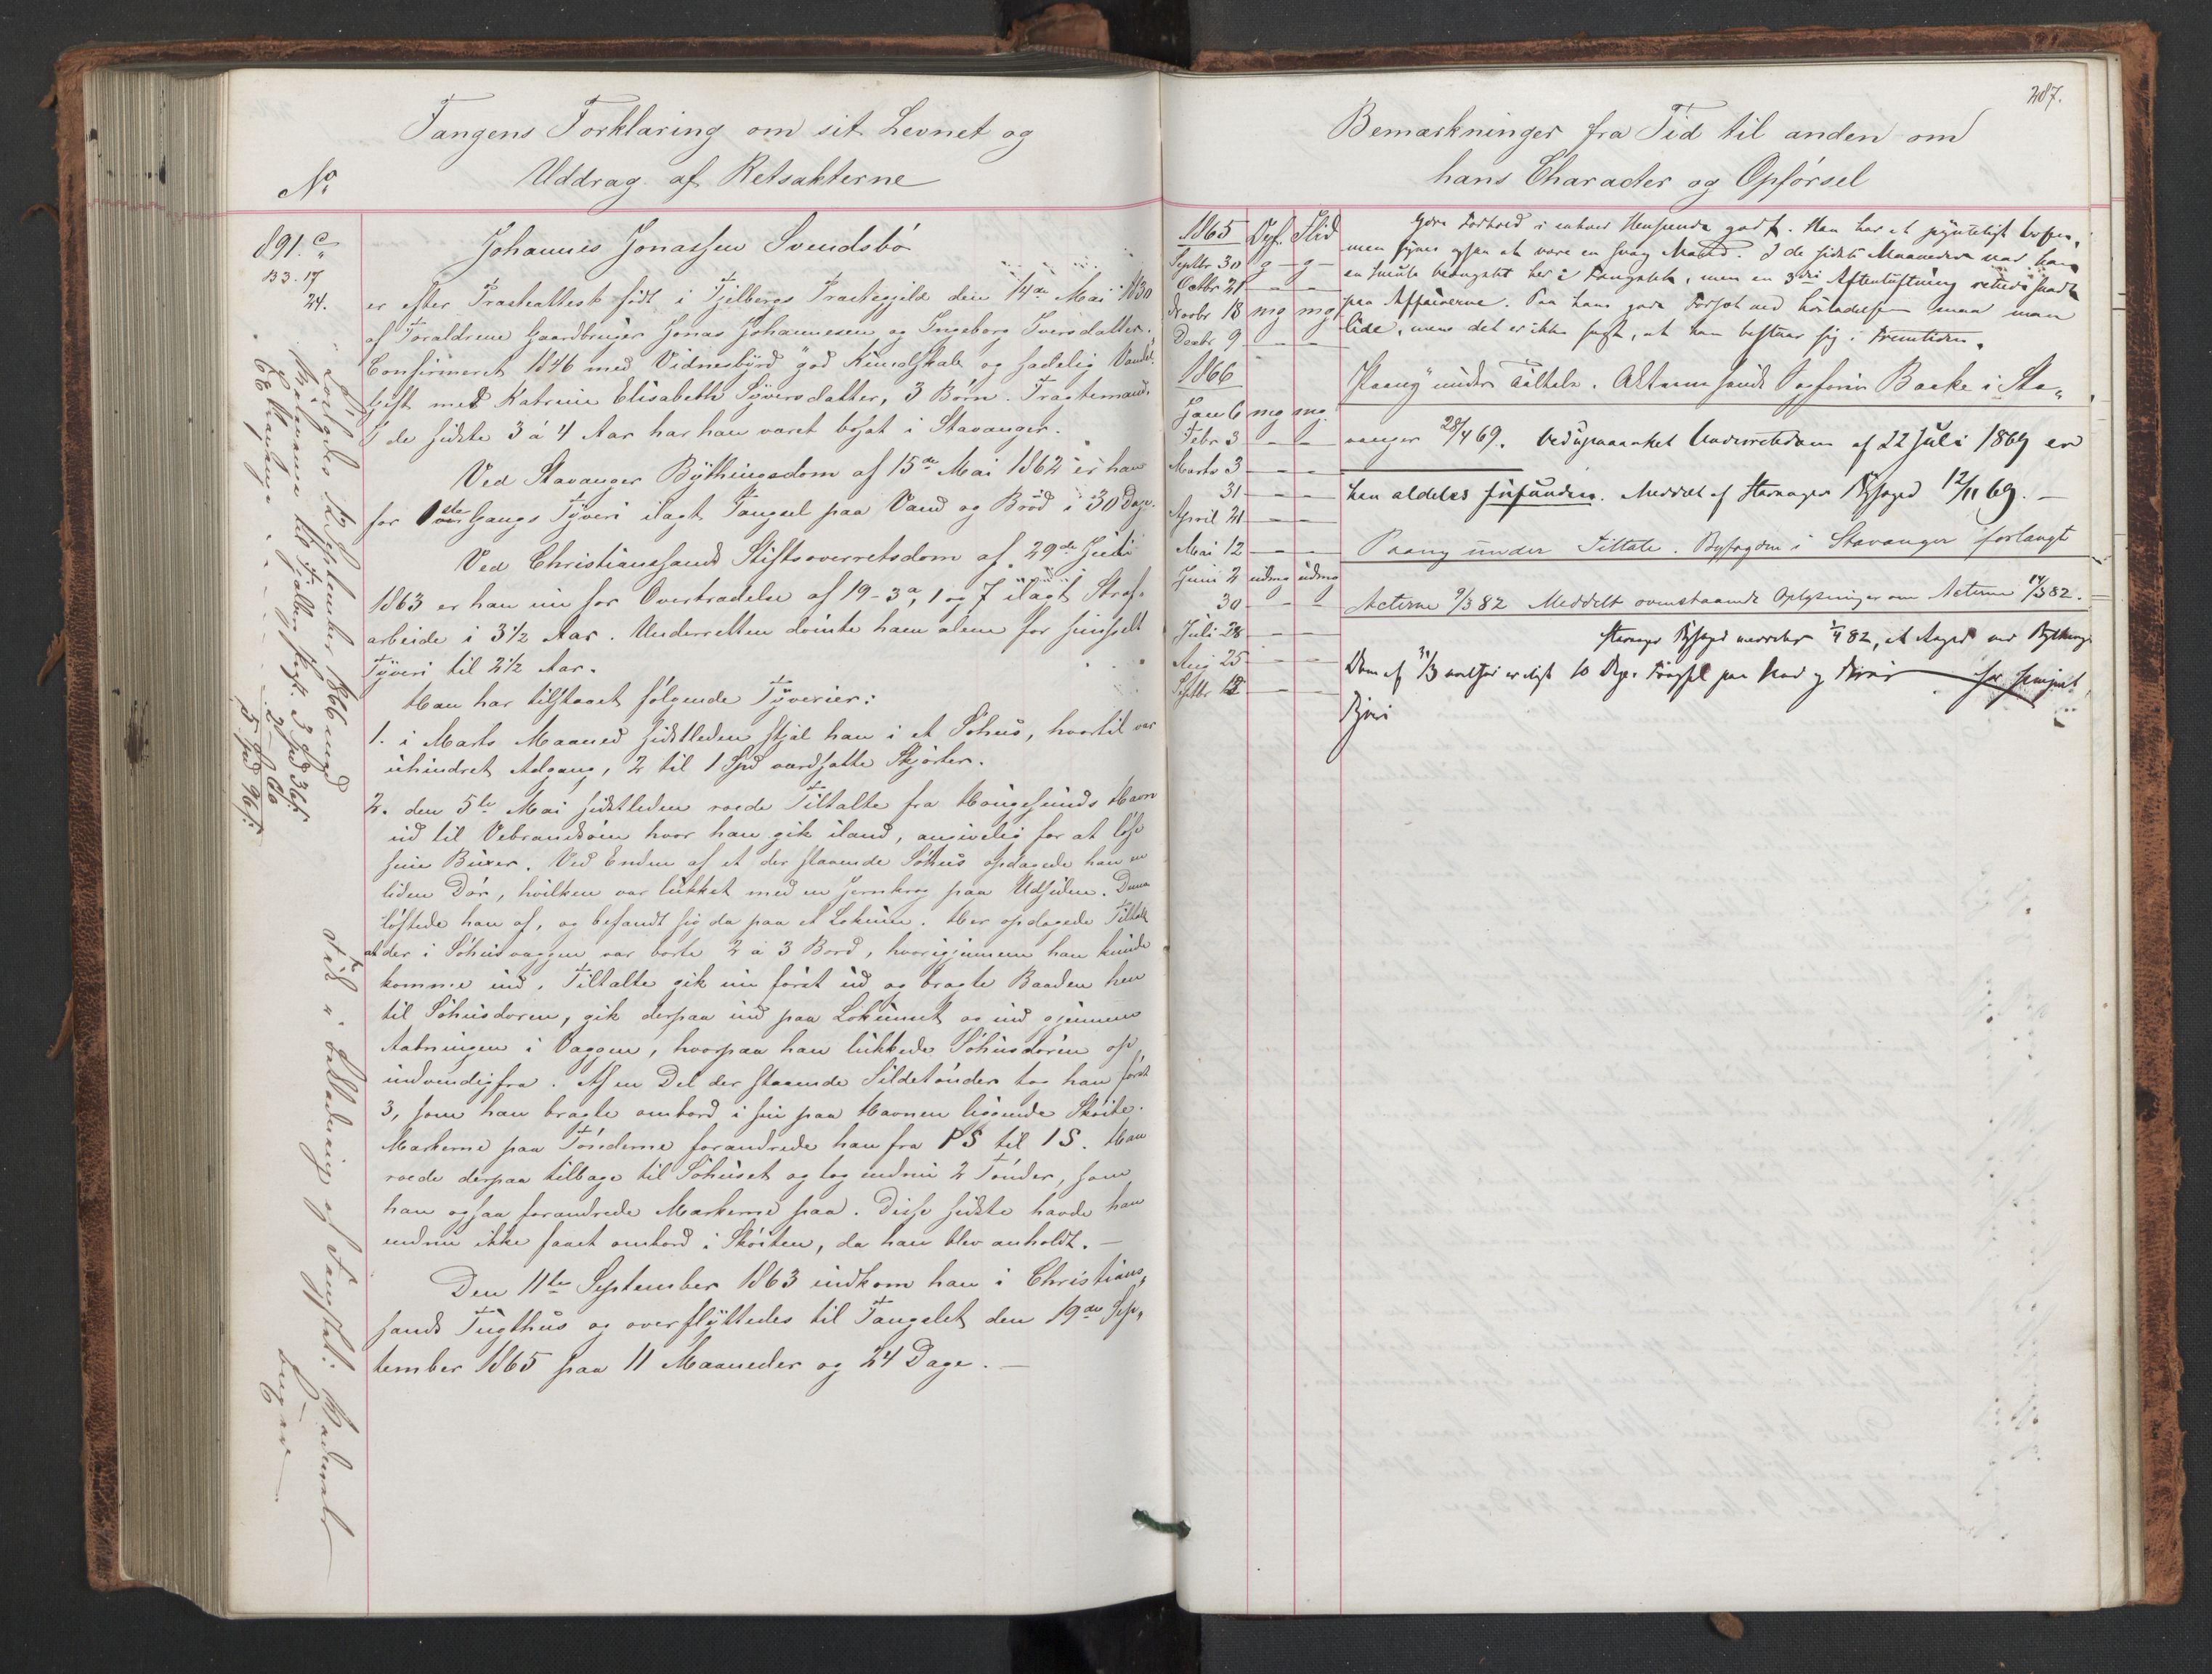 Fangens Forklaring om sit Levnet og
Uddrag af Retsakterne
No
891. c
B3.17
24.
Johannes Jonassen Svendsbö
er efter Præsteattest født i Fjelbergs Præstegjeld den 14de Mai 1830
af Forældrene Gaardbruger Jonas Johannesen og Ingeborg Iversdatter.
Confirmeret 1846 med Vidnesbyrd "god Kundskab og sædelig Vandel"
Gift med Katrine Elisabeth Syversdatter, 3 Börn. Fragtemand.
I de sidste 3 à 4 Aar har han været bosat i Stavanger.
Ved Stavanger Bythingsdom af 15de Mai 1862 er han
for 1ste Gangs Tyveri ilagt Fængsel paa Vand og Bröd i 30 Dage.
Ved Christianssands Stiftsoverretsdom af 29de Juli
1863 er han nu for Overtrædelse af 19-3a, 1 og 7 ilagt Straf-
arbeide i 3½ Aar. Underretten dömte ham alene for simpelt
Tyveri til 2½ Aar.
Han har tilstaaet fölgende Tyverier:
1. i Marts Maaned sidstleden stjal han i et Söhus, hvortil var
uhindret Adgang, 2 til 1 Spd værdsatte Skjörter.
2. den 5te Mai sidstleden roede Tiltalte fra Haugesunds Havn
ud til Vibrandsöen hvor han gik iland, angivelig for at löse
sine Buxer. Ved Enden af et der staaende Söhus opdagede han en
liden Dör, hvilken var lukket med en Jernkrog paa Udsiden. Denne
löftede han af, og befandt sig da paa et Lokum. Her opdagede Tiltalte
at der i Söhusvæggen var borte 2 à 3 Bord, hvorigjennem han kunde
komme ind. Tiltalte gik nu först ud og bragte Baaden hen
til Söhusdören, gik derpaa ind paa Lokummet og ind gjennem
Aabningen i Væggen, hvorpaa han lukkede Söhusdören op
indvendigfra. Af en Del der staaende Sildetönder tog han först
3, som han bragte ombord i sin paa Havnen liggende Sköite.
Mærkerne paa Tönderne forandrede han fra PS til IS. Han
roede derpaa tilbage til Söhuset og tog endnu 2 Tönder, som
han ogsaa forandrede Mærkerne paa. Disse sidste havde han
endnu ikke faaet ombord i Sköiten, da han blev anholdt. —
Den 11te September 1863 indkom han i Christians-
sands Tugthus og overflyttedes til Fængslet den 19de Sep-
tember 1865 paa 11 Maaneder og 24 Dage. —
Löslades 12 September 1866 med
til Fjelberg
Fik i af Fængslet:
287.
Bemærkninger fra Tid til anden om
hans Character og Opförsel
1865 Opf. Flid
Septbr 30 g – g –
Octbr 21 – –
Novbr 18 mg mg
Decbr 9 – –
1866
Jan 6 mg mg
Febr 3 – –
Marts 3 – –
31 – –
April 21 – –
Mai 12 – –
Juni 2 udmg udmg
30 – –
Juli 28 – –
Aug 25 – –
Septbr 12 – –
Hans Forhold i enhver Henseende godt. Han har et
men synes ogsaa at være en svag Mand. I de sidste Maaneder var han
en Smule her i Fængslet, men en 3die
paa Affairerne. Paa hans gode Forsæt ved Lösladelsen maa man
lide, men det er ikke sagt, at han bestaar sig i Fremtiden.
Paany under Tiltale. Akterne sendt Bache i Sta-
vanger 28/4 69. Ved upaaanket Underretsdom af 22 Juli 1869 er
han aldeles frifunden. Meddelt af Stavanger Byfoged 12/11 69. —
Paany under Tiltale. Byfogden i Stavanger forlangt
Acterne 9/3 82 Meddelt ovenstaaende Oplysninger om Acterne 14/3 82.
Stavanger Byfoged meddeler 1/4 82, at ved Bythings
Dom af 31/3 er ilagt 10 Dages Fængsel paa Vand og Bröd for simpelt
Tyveri